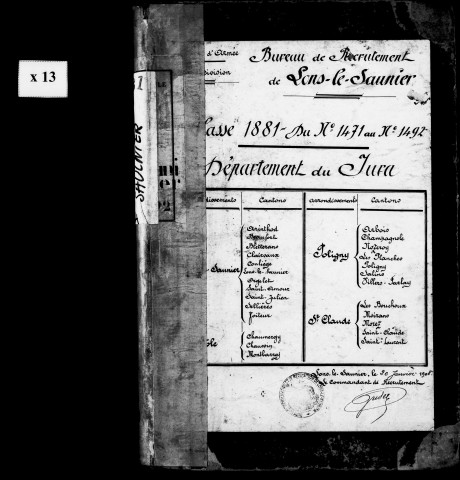 x 13
d'Armée
Division
Bureau de Recrutement
de Lons-le-Saunier
SAULNIER
lasse 1881 - Du N° 1471 au N° 1492
Département du Jura
dissements Cantons Arrondissements Cantons
Arinthod
Beaufort
Bletterans
Clairvaux
Conliège
Saunier Lons-le-Saunier
Orgelet
Saint-Amour
Saint-Julien
Sellières
Voiteur
le
Chaumergy
Chaussin
Montbarrey
Poligny
Arbois
Champagnole
Nozeroy
Les Planches
Poligny
Salins
Villers-Farlay
St Claude
Les Bouchoux
Moirans
Morez
Saint-Claude
Saint-Laurent
Lons-le-Saunier, le 30 Janvier
Le Commandant de Recrutement